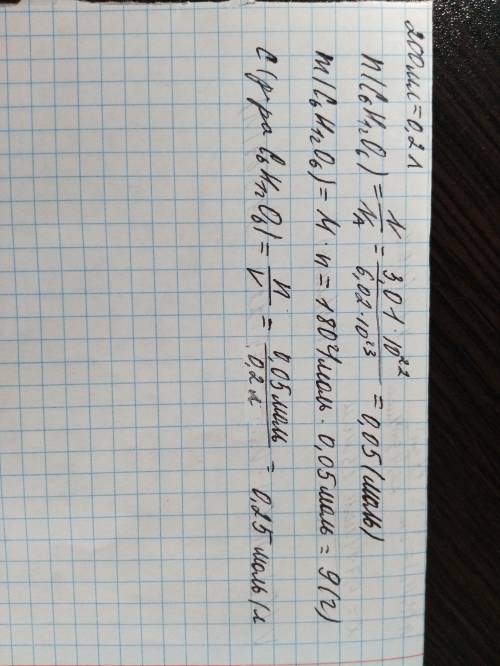 200мл = 0,2л
n(C₆H₁₂O₆) = N/Nₐ = 3,01·10²²/6,02·10²³ = 0,05(моль)
m(C₆H₁₂O₆) = M·n = 180г/моль·0,05моль = 9(г)
C(р-ра C₆H₁₂O₆) = n/V = 0,05моль/0,2л = 0,25моль/л